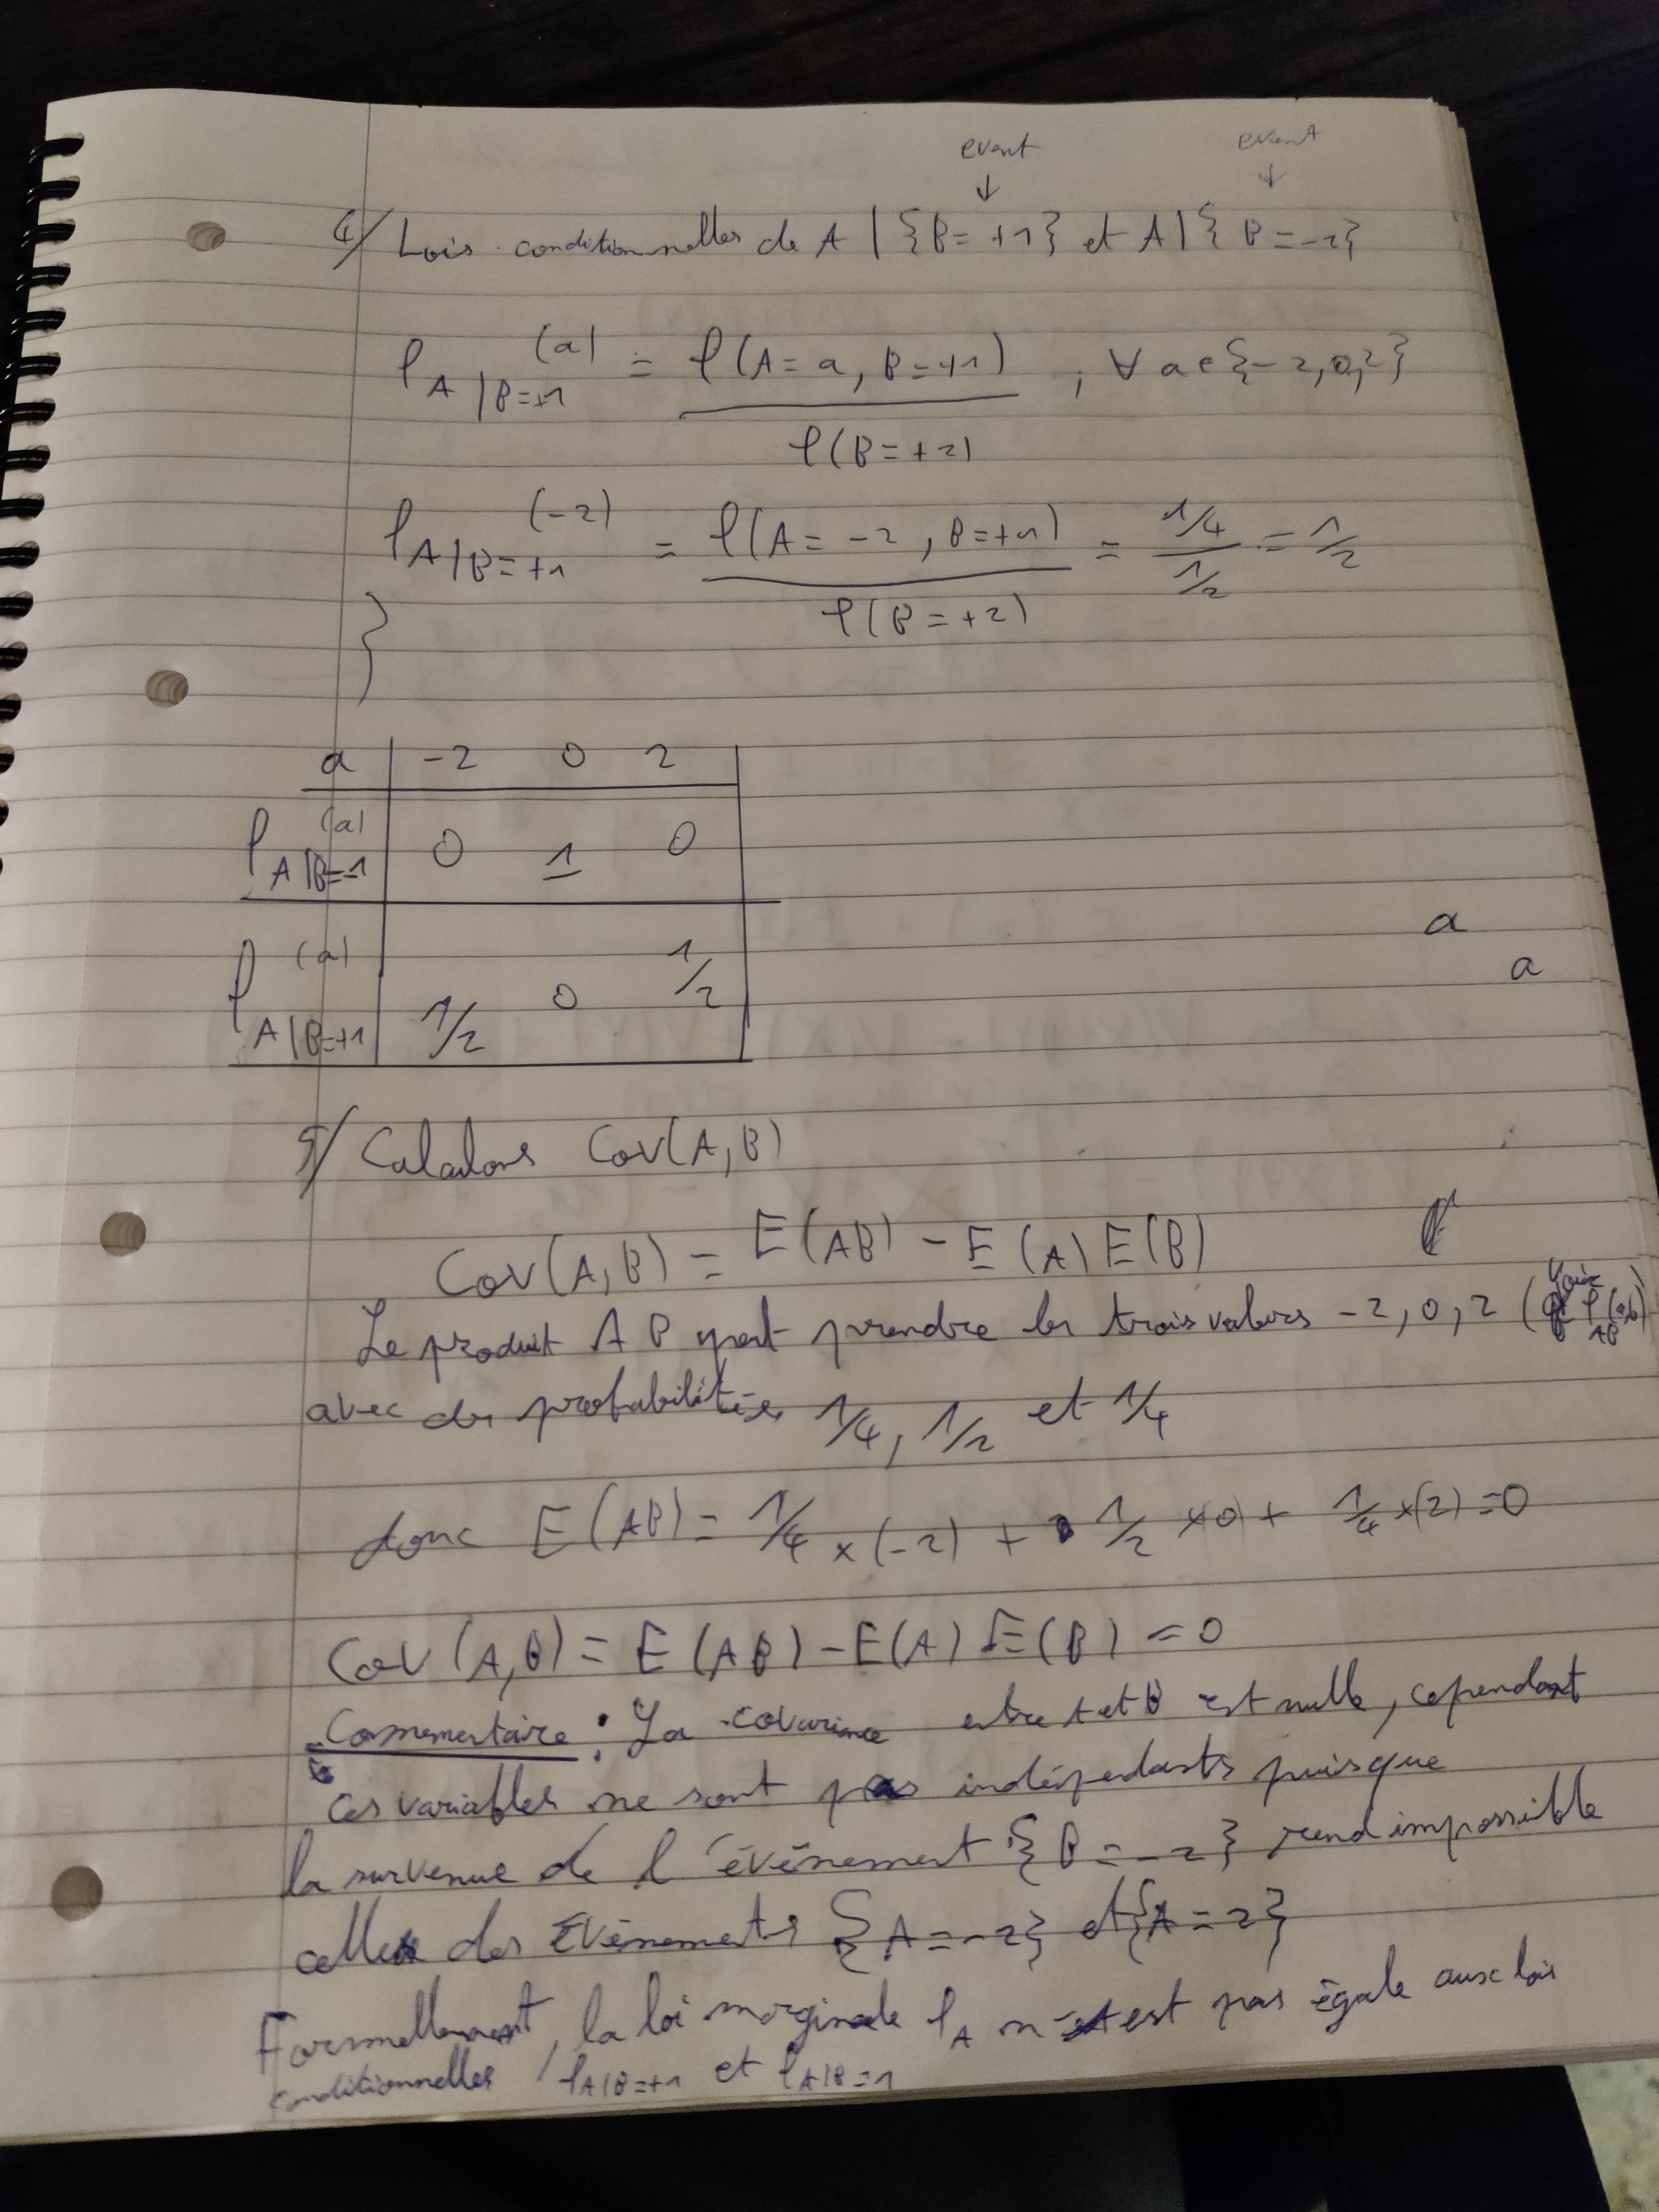 event event
↓ ↓
4/ Lois conditionnelles de A | {B = +1} et A | { B = -1}
P A|B=+1 (a) = P(A = a, B = +1) / P(B = +1) , ∀ a ∈ {-2, 0, 2}
P A|B=+1 (-2) = P(A = -2, B = +1) / P(B = +1) = 1/4 / 1/2 = 1/2
}
a | -2 0 2
P A|B=-1 (a) | 0 1 0
P A|B=+1 (a) | 1/2 0 1/2
a
a
5/ Calculons Cov(A, B)
Cov(A, B) = E(AB) - E(A) E(B)
Le produit AB peut prendre les trois valeurs -2, 0, 2 (voir P AB (a,b))
avec des probabilités 1/4, 1/2 et 1/4
donc E(AB) = 1/4 × (-2) + 1/2 × 0 + 1/4 × (2) = 0
Cov(A, B) = E(AB) - E(A) E(B) = 0
Commentaire : La covariance entre A et B est nulle, cependant
ces variables ne sont pas indépendants puisque
la survenue de l'événement {B = -1} rend impossible
celle des événements {A = -2} et {A = 2}
Formellement, la loi marginale P A n'est pas égale aux lois
conditionnelles P A|B=+1 et P A|B=-1